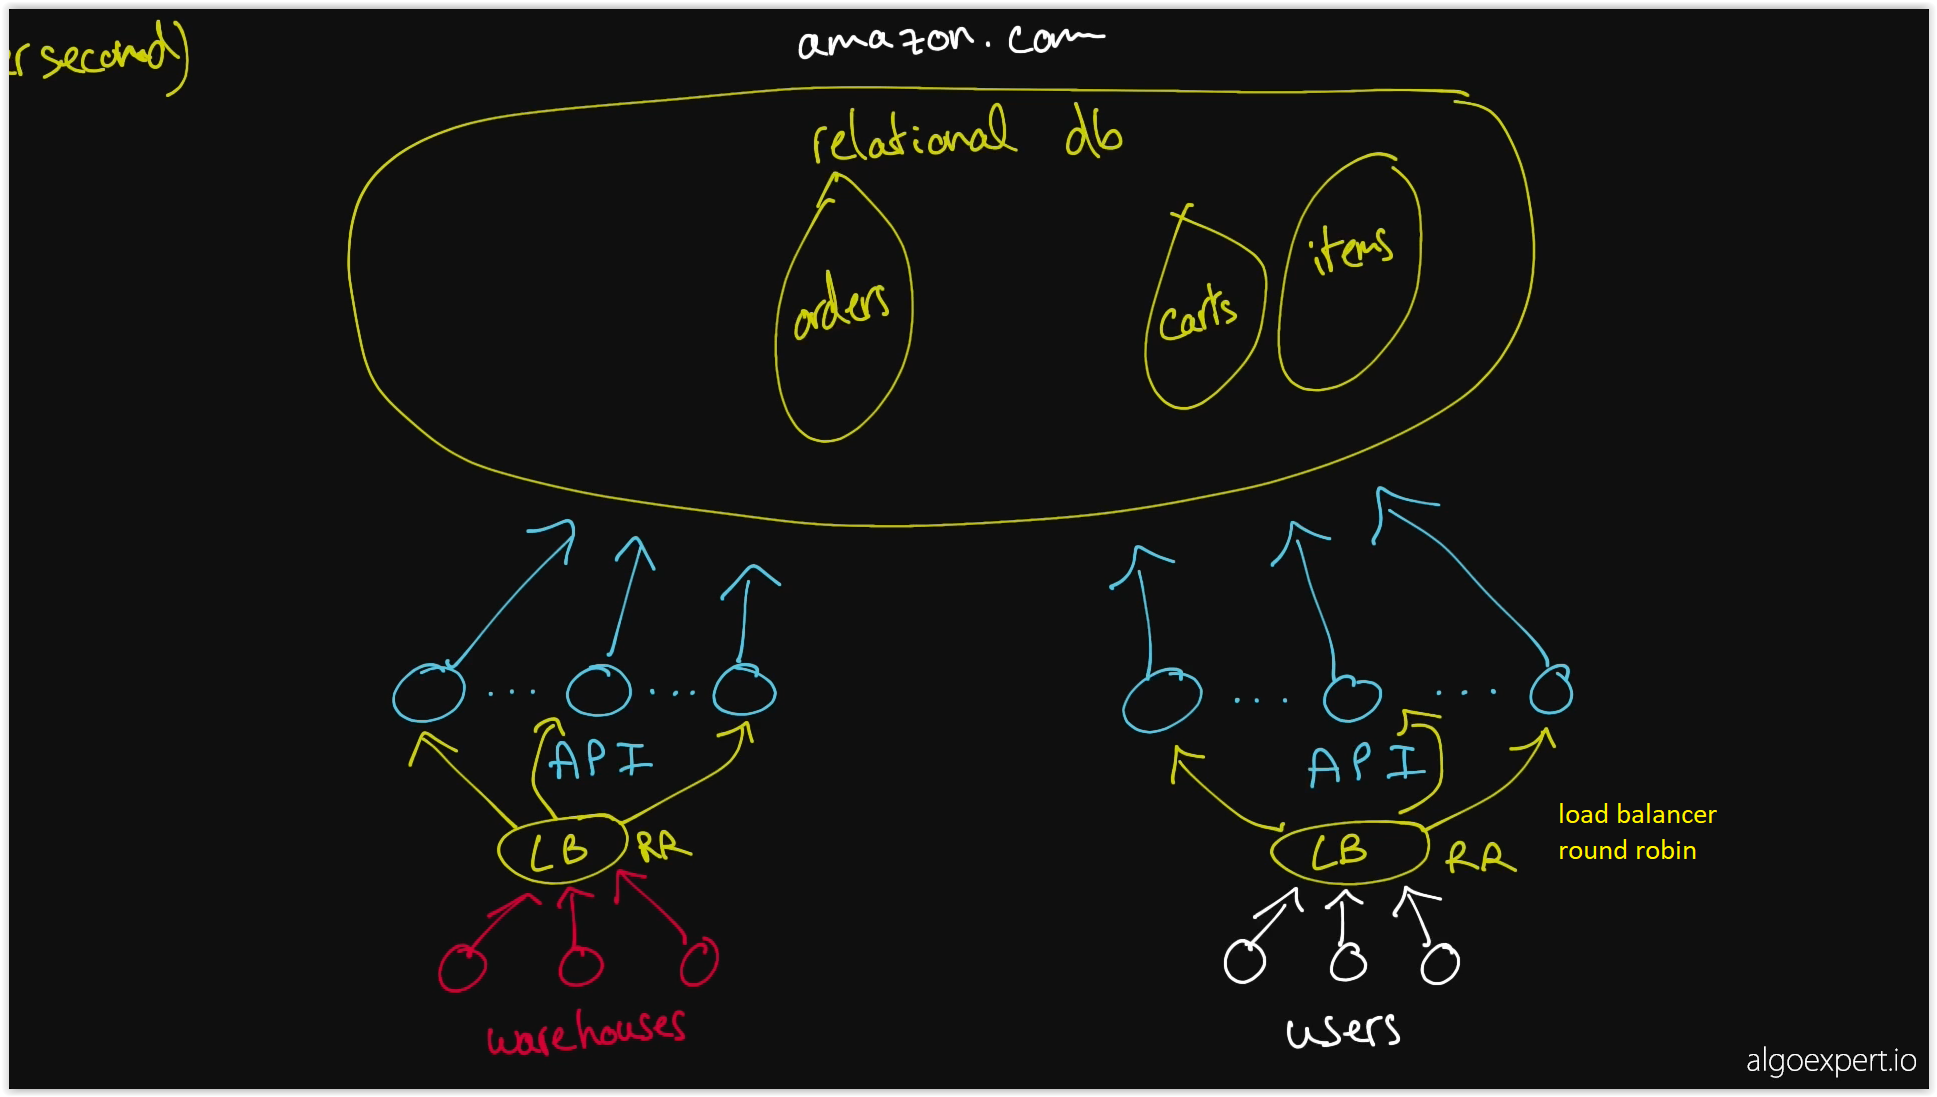 er second)
amazon.com
relational db
orders
carts
items
API
API
LB RR
LB RR
load balancer
round robin
warehouses
users
algoexpert.io